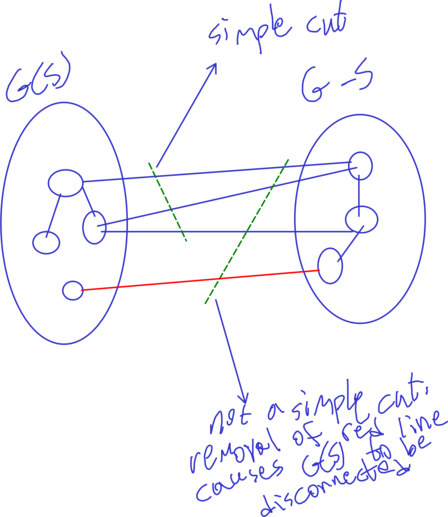 simple cut
G(S)
G-S
not a simple cut,
removal of red line
causes G(S) to be
disconnected